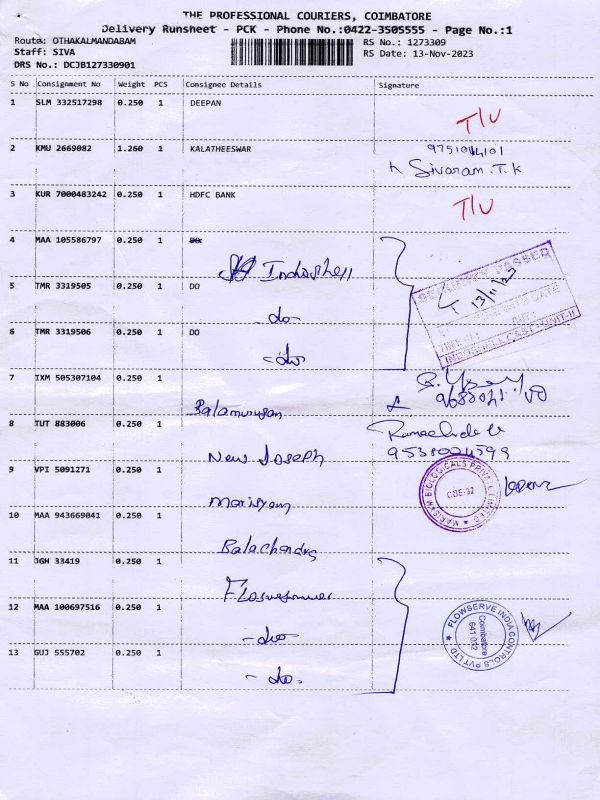 THE PROFESSIONAL COURIERS, COIMBATORE
Delivery Runsheet - PCK - Phone No.:0422-3505555 - Page No.:1
Route: OTHAKALMANDABAM
RS No.: 1273309
Staff: SIVA
RS Date: 13-Nov-2023
DRS No.: DCJB127330901
S No Consignment No Weight PCS Consignee Details Signature
1 SLM 332517298 0.250 1 DEEPAN T/U
2 KMU 2669082 1.260 1 KALATHEESWAR
Sivaram.T.K
3 KUR 7000483242 0.250 1 HDFC BANK T/U
4 MAA 105586797 0.250 1 DO
Indoshell
SECURITY PASSED
13/11/23
DATE
INDOSHELL CAST UNIT-II
5 TMR 3319505 0.250 1 DO
-do-
6 TMR 3319506 0.250 1 DO
-do-
7 IXM 505307104 0.250 1
Balamurugan
8 TUT 883006 0.250 1
New Joseph
9 VPI 5091271 0.250 1
BIOLOGICALS PRIVATE LIMITED
CBE-32
10 MAA 943669041 0.250 1
Balachandra
11 JGH 33419 0.250 1
12 MAA 100697516 0.250 1
-do-
FLOWSERVE INDIA CONTROLS PVT LTD
Coimbatore
641 032
13 GUJ 555702 0.250 1
-do-